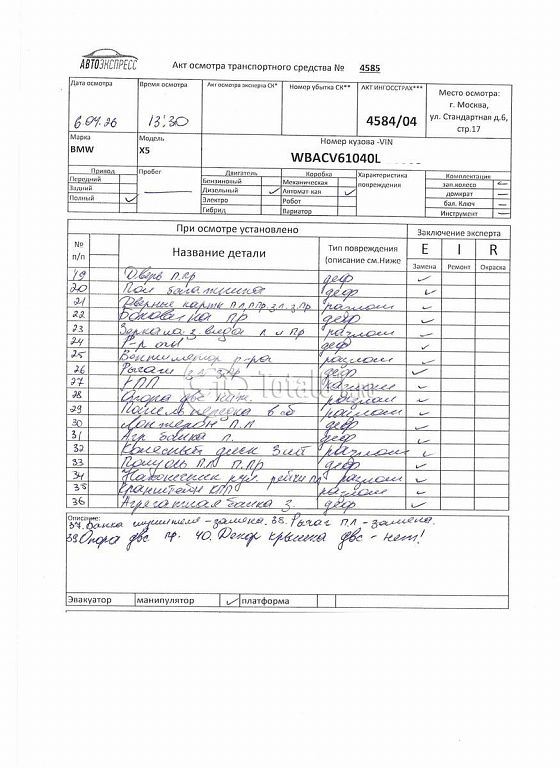 АВТОЭКСПРЕСС
Акт осмотра транспортного средства № 4585
Дата осмотра Время осмотра Акт осмотра эксперта СК* Номер убытка СК** АКТ ИНГОССТРАХ*** Место осмотра:
г. Москва,
ул. Стандартная д.6,
стр.17
13:30 4584/04
Марка Модель Номер кузова -VIN
BMW X5 WBACV61040L
Привод Пробег Двигатель Коробка Характеристика повреждения Комплектация
Передний Бензиновый Механическая зап.колесо
Задний Дизельный Автомат кая домкрат
Полный Электро Робот бал. Ключ
Гибрид Вариатор Инструмент
При осмотре установлено Заключение эксперта
№ п/п Название детали Тип повреждения (описание см.Ниже E I R
Замена Ремонт Окраска
19 Дверь П.Пр деф
20 Пол багажника деф
21 разлом
22 Боковина Пр деф
23 Зеркала з.вида Л и Пр разлом
24 деф
25 Вентилятор р-ра разлом
26 Рычаги деф
27 КПП разлом
28 Опора двс разлом
29 разлом
30 Лонжерон П.Л деф
31 деф
32 Колесный диск 3шт разлом
33 деф
34 Наконечник рул. рейки Пр разлом
35 Кронштейн КПП разлом
36 Агрегатная балка З. деф
Описание:
37. Балка - замена. 38. Рычаг П.Л - замена.
39 Опора двс Пр. 40. Декор крышка двс - нет!
Эвакуатор манипулятор платформа
TotalC